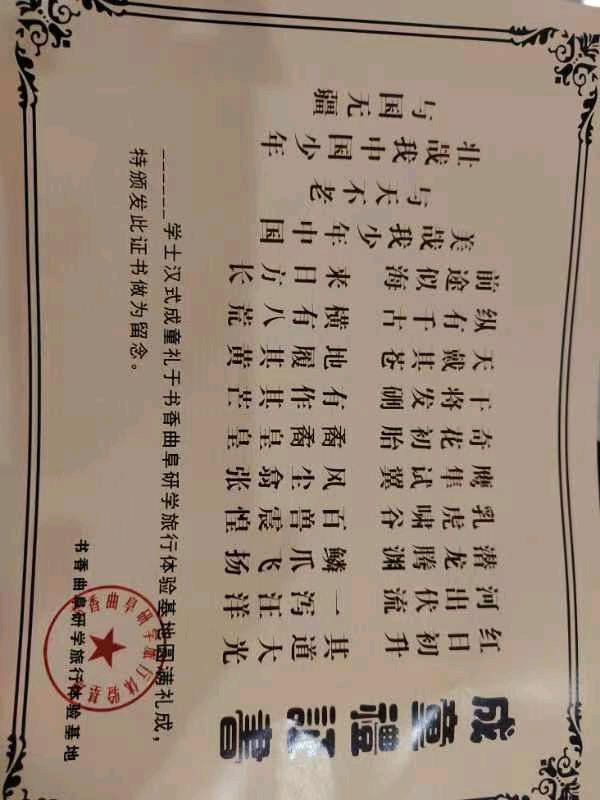 成童禮証書
红日初升 其道大光
河出伏流 一泻汪洋
潜龙腾渊 鳞爪飞扬
乳虎啸谷 百兽震惶
鹰隼试翼 风尘翕张
奇花初胎 矞矞皇皇
干将发硎 有作其芒
天戴其苍 地履其黄
纵有千古 横有八荒
前途似海 来日方长
美哉我少年中国
与天不老
壮哉我中国少年
与国无疆
______学士汉式成童礼于书香曲阜研学旅行体验基地圆满礼成，
特颁发此证书做为留念。
书香曲阜研学旅行体验基地
香曲阜研学旅行体验基